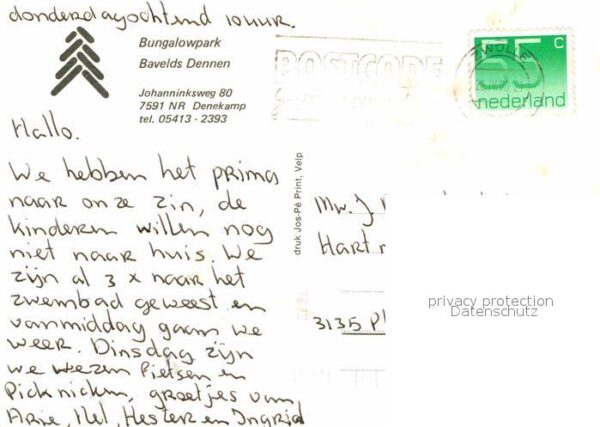 donderdagochtend 10 uur.
Bungalowpark
Bavelds Dennen
Johanninksweg 80
7591 NR Denekamp
tel. 05413 - 2393
POSTCODE
ZWOLLE
55 c
nederland
Hallo.
We hebben het prima
naar onze zin, de
kinderen willen nog
niet naar huis. We
zijn al 3 x naar het
zwembad geweest en
vanmiddag gaan we
weer. Dinsdag zijn
we wezen Fietsen en
Picknicken, groetjes van
Arie, Nel, Hester en Ingrid
druk Jos-Pé Print, Velp
Mw. J.
Hart
3135 Pl
privacy protection
Datenschutz